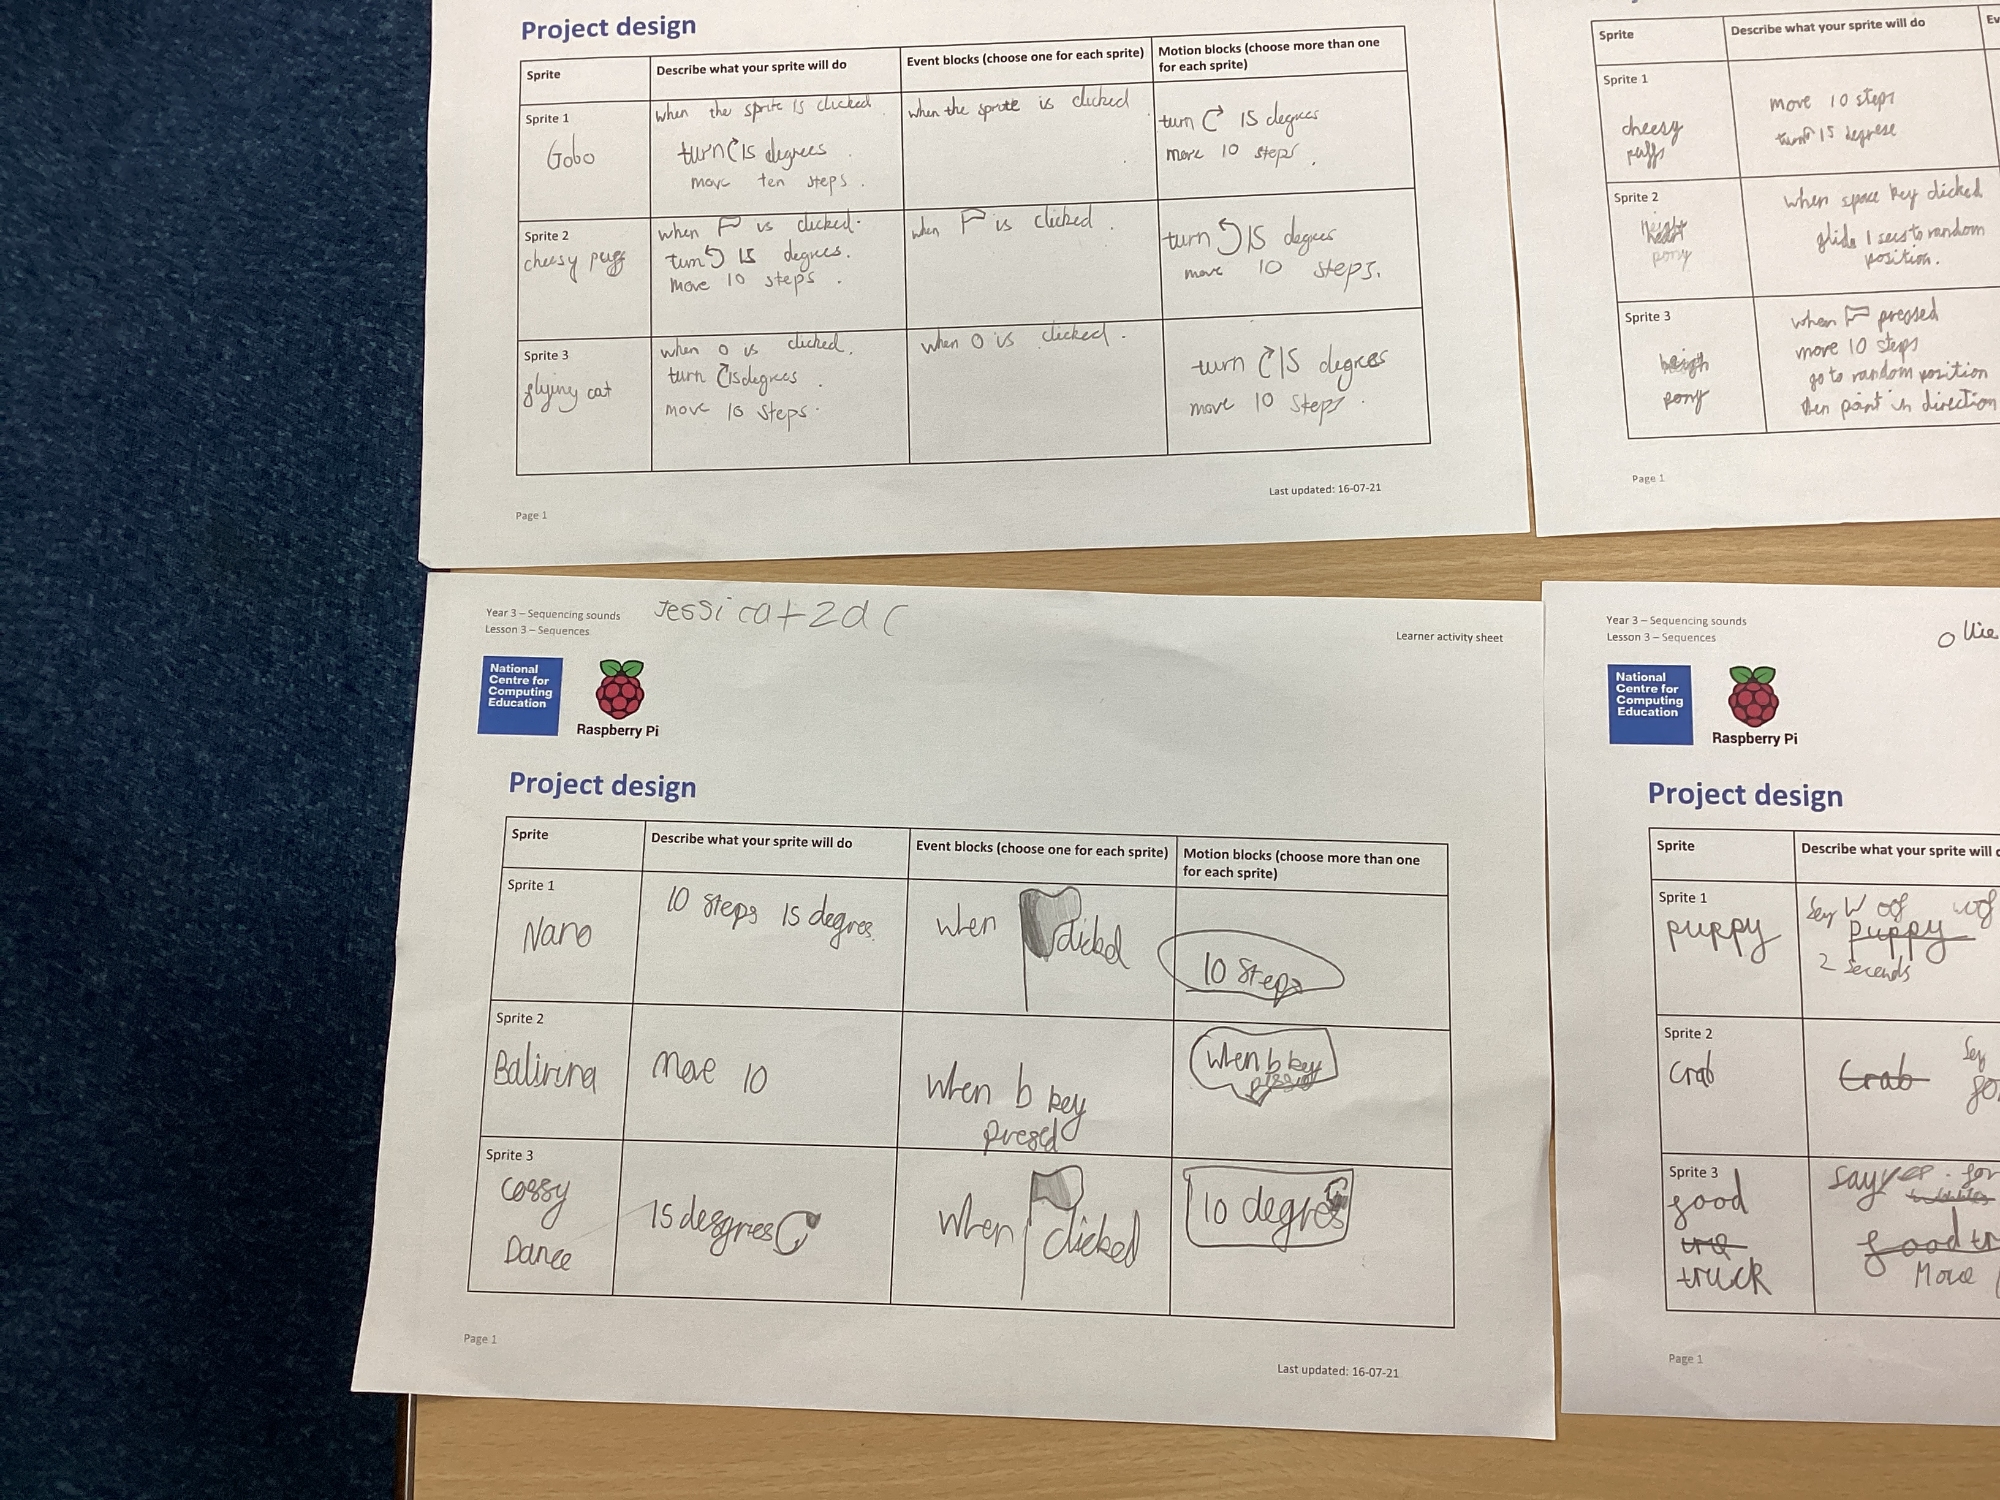 Project design
Sprite
Describe what your sprite will do
Event blocks (choose one for each sprite)
Motion blocks (choose more than one
for each sprite)
Sprite 1
Gobo
when the sprite is clicked
turn 15 degrees
move ten steps.
when the sprite is clicked
turn 15 degrees
move 10 steps.
Sprite 2
cheesy puffs
when is clicked.
turn 15 degrees.
move 10 steps.
when is clicked.
turn 15 degrees
move 10 steps.
Sprite 3
flying cat
when o is clicked.
turn 15 degrees.
move 10 steps.
when o is clicked.
turn 15 degrees
move 10 steps.
Page 1
Last updated: 16-07-21
Sprite
Describe what your sprite will do
Ev
Sprite 1
cheesy
puffs
move 10 steps
turn 15 degrese
Sprite 2
pony
when space key clicked
glide 1 secs to random
position.
Sprite 3
pony
when pressed
move 10 steps
go to random position
then point in direction
Page 1
Year 3 – Sequencing sounds
Lesson 3 – Sequences
Learner activity sheet
National
Centre for
Computing
Education
Raspberry Pi
Project design
Sprite
Describe what your sprite will do
Event blocks (choose one for each sprite)
Motion blocks (choose more than one
for each sprite)
Sprite 1
Nano
10 steps 15 degres.
when clicked
10 steps
Sprite 2
Balirina
move 10
when b key
presed
when b key
Sprite 3
Cassy
Dance
15 desgries
when clicked
10 degres
Page 1
Last updated: 16-07-21
Year 3 – Sequencing sounds
Lesson 3 – Sequences
Ollie
National
Centre for
Computing
Education
Raspberry Pi
Project design
Sprite
Describe what your sprite will
Sprite 1
puppy
Say Wof wof
puppy
2 seconds
Sprite 2
crab
Crab
Say
Sprite 3
good
truck
Say yep. for
good tr
Move
Page 1